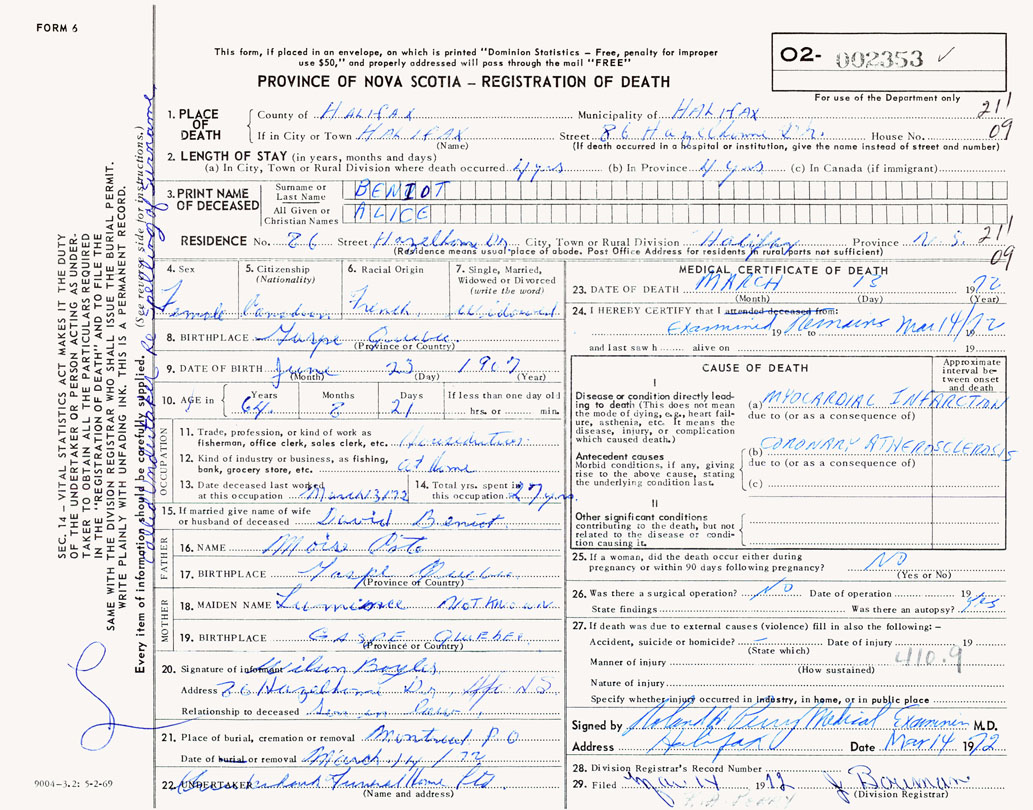 FORM 6
This form, if placed in an envelope, on which is printed "Dominion Statistics – Free, penalty for improper
use $50," and properly addressed will pass through the mail "FREE"
PROVINCE OF NOVA SCOTIA – REGISTRATION OF DEATH
02- 002353 ✓
For use of the Department only
1. PLACE OF DEATH
County of HALIFAX Municipality of HALIFAX 21'
If in City or Town HALIFAX Street 86 Hazelholme Dr. House No. 09
(Name) (If death occurred in a hospital or institution, give the name instead of street and number)
2. LENGTH OF STAY (in years, months and days)
(a) In City, Town or Rural Division where death occurred 4 yrs (b) In Province 4 yrs (c) In Canada (if immigrant)
3. PRINT NAME OF DECEASED
Surname or Last Name BENIOT
All Given or Christian Names ALICE
RESIDENCE No. 86 Street Hazelholme Dr. City, Town or Rural Division Halifax Province N.S. 21'
(Residence means usual place of abode. Post Office Address for residents in rural parts not sufficient) 09
4. Sex
Female
5. Citizenship
(Nationality)
Canadian
6. Racial Origin
French
7. Single, Married,
Widowed or Divorced
(write the word)
Widowed
8. BIRTHPLACE Quebec
(Province or Country)
9. DATE OF BIRTH June 23 1907
(Month) (Day) (Year)
10. AGE in Years 64 Months 8 Days 21 If less than one day old
hrs. or min.
OCCUPATION
11. Trade, profession, or kind of work as
fisherman, office clerk, sales clerk, etc.
12. Kind of industry or business, as fishing,
bank, grocery store, etc. at home
13. Date deceased last worked
at this occupation
14. Total yrs. spent in
this occupation 27 yrs.
15. If married give name of wife
or husband of deceased David Beniot
FATHER
16. NAME Moise
17. BIRTHPLACE Quebec
(Province or Country)
MOTHER
18. MAIDEN NAME NOT Known
19. BIRTHPLACE GASPE QUEBEC
(Province or Country)
20. Signature of informant Wilson
Address 86 Hazelholme Dr., Hfx. N.S
Relationship to deceased Son in Law
21. Place of burial, cremation or removal Montreal P.Q
Date of burial or removal March 14/72
22. UNDERTAKER Funeral Home Ltd
(Name and address)
MEDICAL CERTIFICATE OF DEATH
23. DATE OF DEATH MARCH 13 1972
(Month) (Day) (Year)
24. I HEREBY CERTIFY that I attended deceased from:
Examined 19 Remains Mar 14/72 19
and last saw h alive on 19
CAUSE OF DEATH
Approximate interval between onset and death
I
Disease or condition directly leading to death (This does not mean the mode of dying, e.g., heart failure, asthenia, etc. It means the disease, injury, or complication which caused death.)
(a) MYOCARDIAL INFARCTION
due to (or as a consequence of)
Antecedent causes
Morbid conditions, if any, giving rise to the above cause, stating the underlying condition last.
(b) CORONARY ATHEROSCLEROSIS
due to (or as a consequence of)
(c)
II
Other significant conditions
contributing to the death, but not related to the disease or condition causing it.
25. If a woman, did the death occur either during
pregnancy or within 90 days following pregnancy? NO
(Yes or No)
26. Was there a surgical operation? NO Date of operation 19
State findings Was there an autopsy? Yes
27. If death was due to external causes (violence) fill in also the following: –
Accident, suicide or homicide? – Date of injury 19
(State which) 410.9
Manner of injury
(How sustained)
Nature of injury
Specify whether injury occurred in industry, in home, or in public place
Signed by Roland A Perry Medical Examiner M.D.
Address Halifax Date Mar 14 1972
28. Division Registrar's Record Number
29. Filed Mar. 14 1972
(Division Registrar)
SEC. 14 – VITAL STATISTICS ACT MAKES IT THE DUTY
OF THE UNDERTAKER OR PERSON ACTING AS UNDER-
TAKER TO OBTAIN ALL THE PARTICULARS REQUIRED
IN THE "REGISTRATION OF DEATH" AND TO FILE THE
SAME WITH THE DIVISION REGISTRAR WHO SHALL ISSUE THE BURIAL PERMIT.
WRITE PLAINLY WITH UNFADING INK. THIS IS A PERMANENT RECORD.
Every item of information should be carefully supplied. (See reverse side for instructions.)
Called Undertaker Re spelling of surname.
9004-3.2: 5-2-69